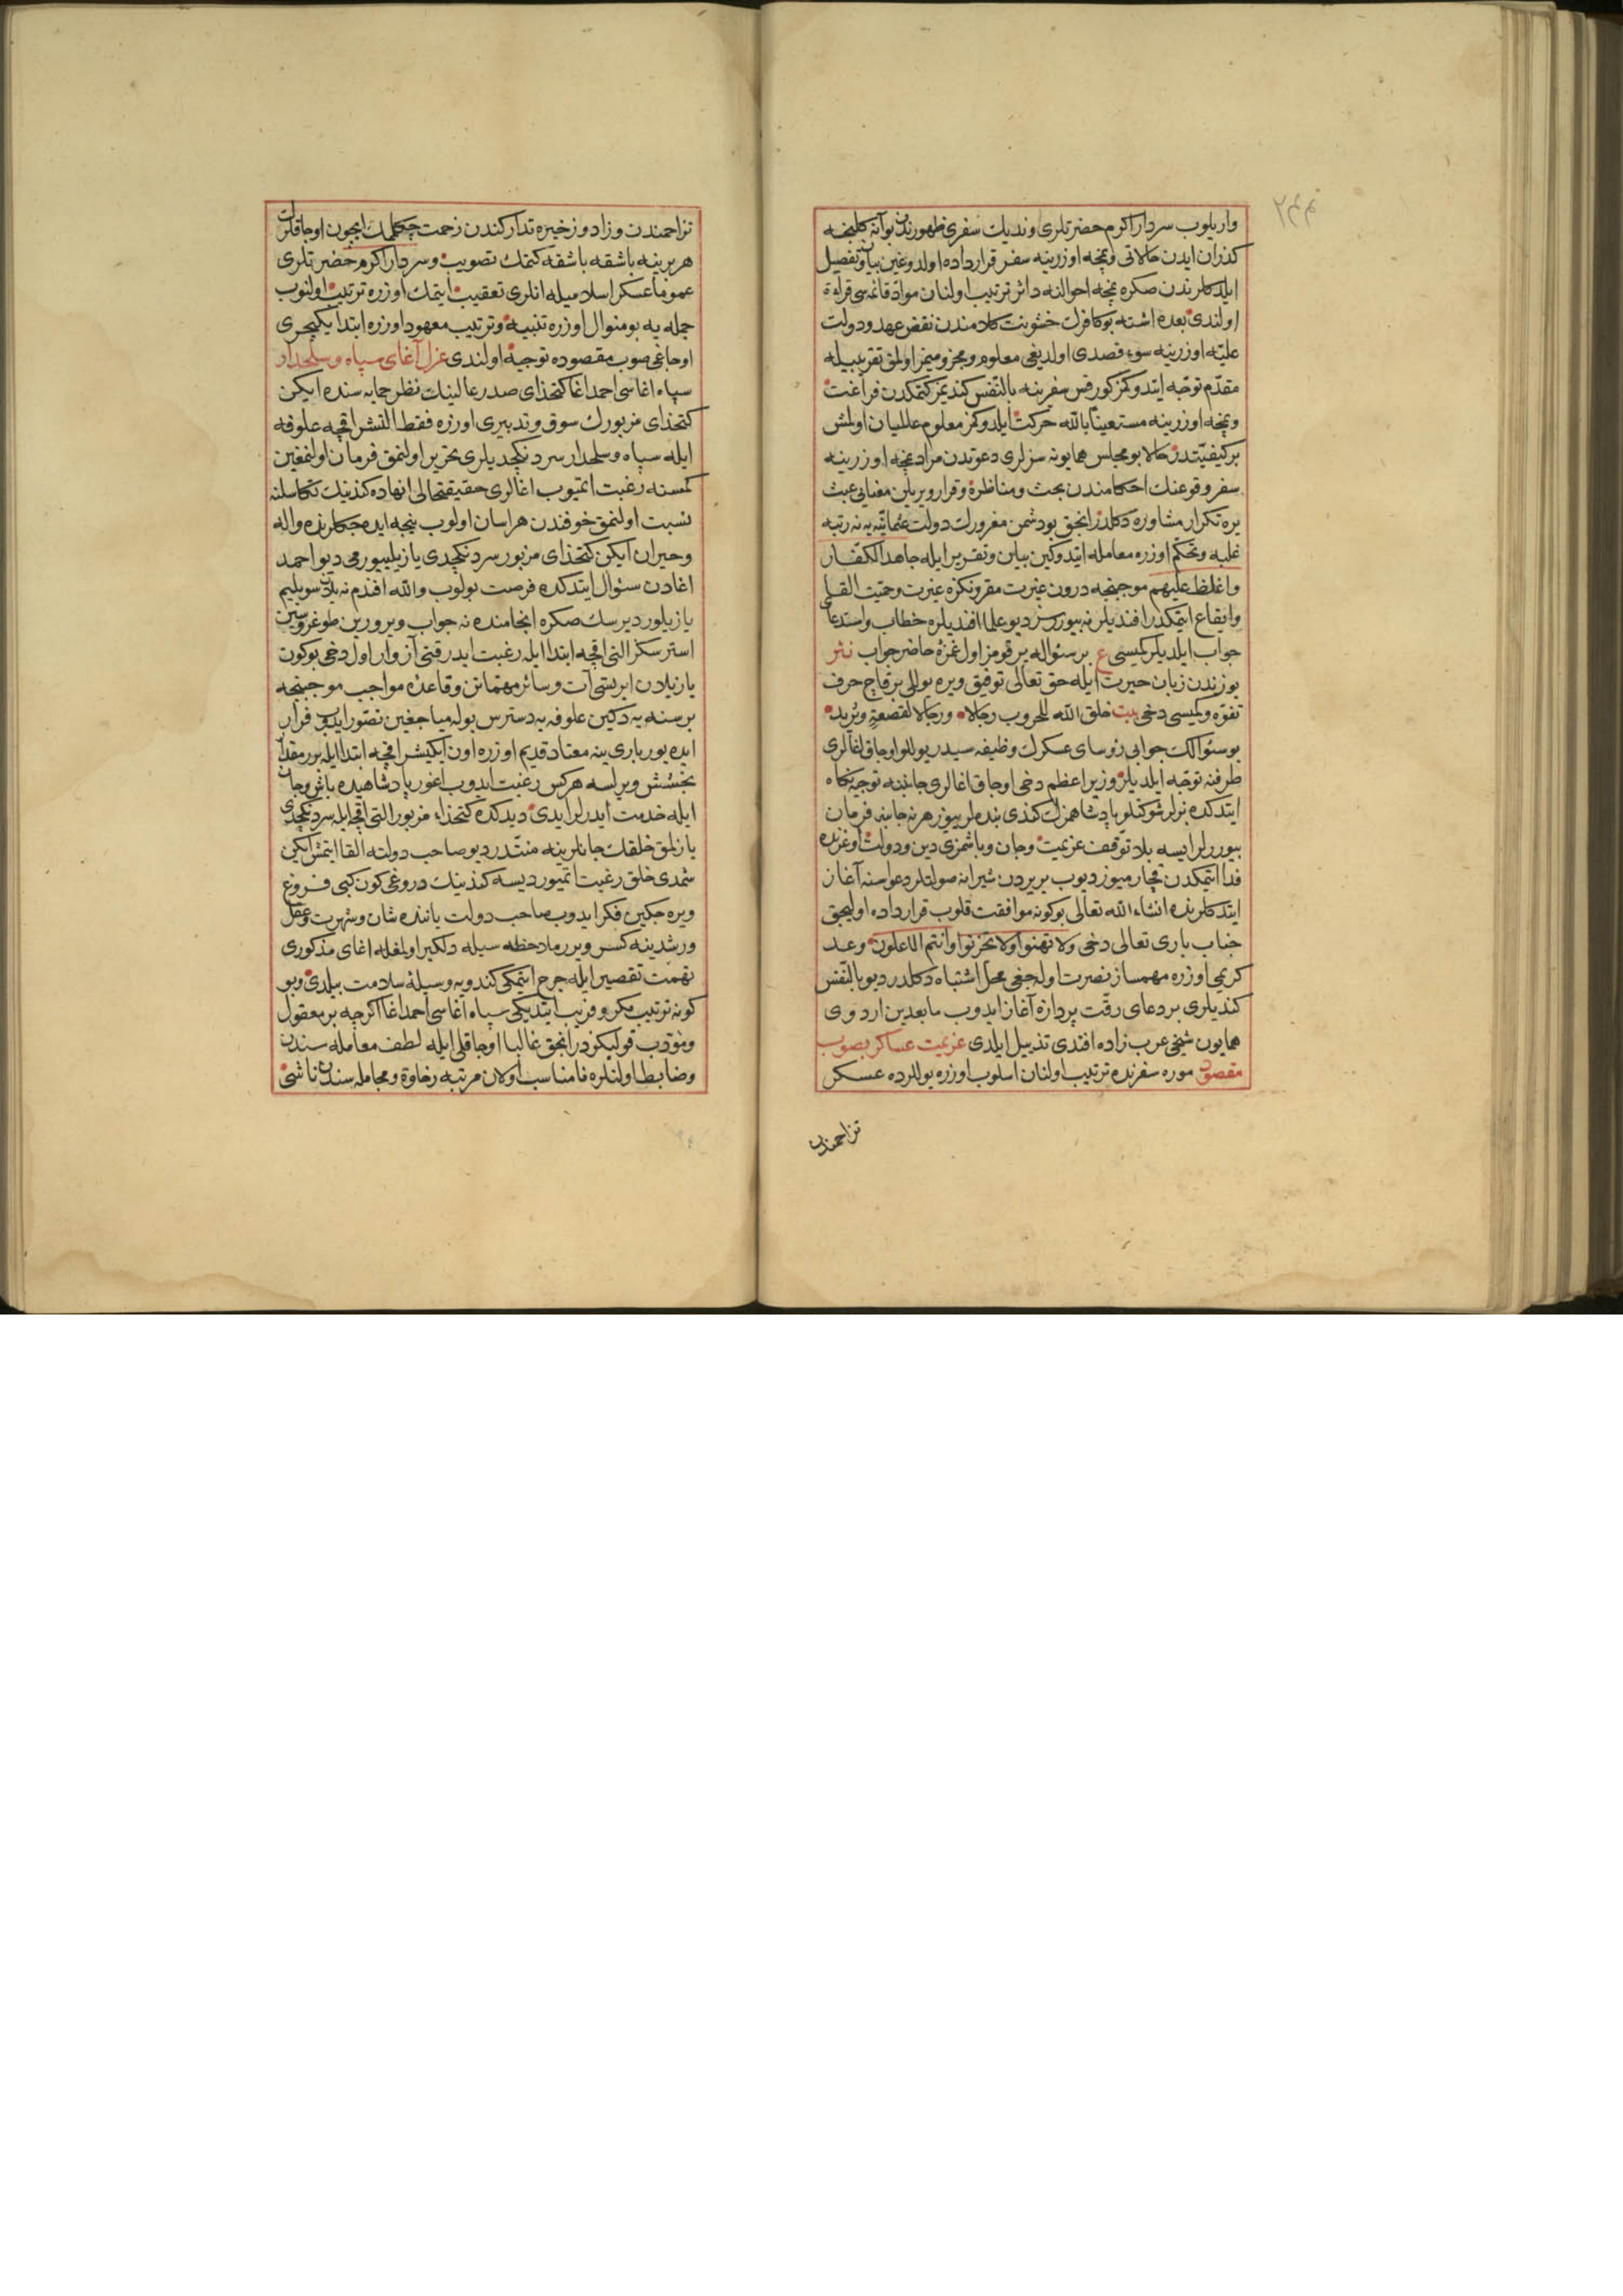 واریلوب سردار اکرم حضرتلری وندیك سفری ظهورندن بو آنه کلنجه
کذران ایدن حالاتی ونمچه اوزرینه سفر قرارداده اولدوغین بیان وتفصیل
ایلدکلرندن صکره نمچه احوالنه دائر ترتیب اولنان مواد قائمه‌سی قرائة
اولندی بعده اشته بو کافرك خشونت کلامندن نقض عهد ودولت
علیّه اوزرینه سوء قصدی اولدیغی معلوم ومجزومیمز اولمق تقریبیله
مقدّم توجّه ایتدوکمز کورفس سفرینه بالنّفس کندیمز کتمکدن فراغت
ونمچه اوزرینه مستعیناً بالله حرکت ایلدوکمز معلوم عالمیان اولمش
بر کیفیّتدر حالا بو مجلس همایونه سزلری دعوتدن مراد نمچه اوزرینه
سفر وقوعنك احکامندن بحث ومناظره وقرار ویریلن معنایی عبث
یره تکرار مشاوره دکلدر انجق بو دشمن مغرورك دولت عثمانیّه‌یه نه رتبه
غلبه وتحکّم اوزره معامله ایتدوکین بیان وتقریر ایله جاهد الکفّار
واغلظ علیهم موجبنجه درون غیرت مقرونکزه غیرت وحمیّت القا
وایقاع ایتمکدر افندیلر نه بیوررسز دیو علما افندیلره خطاب واستدعا
جواب ایلدیلر کمیسی ع بر سئواله یر قومز اول غمزهٔ حاضر جواب نثر
یوزندن زبان حیرت ایله حق تعالی توفیق ویره یوللی بر قاچ حرف
تفوّه وکمیسی دخی بیت خلق الله للحروب رجالا ورجالا لقصعةٍ وثرید
بو سئوالك جوابی رؤسای عسکرك وظیفه سیدر یوللو اوجاق اغالری
طرفنه توجّه ایلدیلر وزیر اعظم دخی اوجاق اغالری جانبنه توجیه نکاه
ایتدکده بزلر شوکتلو پادشاهمزك کندی بنده‌لرییوز هر نه جانبه فرمان
بیوررلر ایسه بلا توقّف عزیمت وجان وباشمزی دین ودولت اوغرینه
فدا ایتمکدن قچارمیوز دیوب بر یردن شیرانه صولتلر دعواسنه آغاز
ایتدکلرنده انشاء الله تعالی بو کونه موافقت قلوب قرارداده اولیجق
جناب باری تعالی دخی ولا تهنوا ولا تحزنوا وانتم الاعلون وعد
کریمی اوزره مهمساز نصرت اوله‌جغی محلّ اشتباه دکلدر دیو بالنّفس
کندیلری بر دعای رقّت پردازه آغاز ایدوب ما بعدین اردوی
همایون شیخی عرب زاده افندی تذییل ایلدی عزیمت عساکر بصوب
مقصود موره سفرنده ترتیب اولنان اسلوب اوزره یوللرده عسکر
تزاحمندن
تزاحمندن وزاد وزخیره تدارکندن زحمت چکلمامك ایچون اوجاقلرك
هر برینه باشقه باشقه کتمك تصویب وسردار اکرم حضرتلری
عموماً عسکر اسلامیله انلری تعقیب ایتمك اوزره ترتیب اولنوب
جمله‌یه بو منوال اوزره تنبیه وترتیب معهود اوزره ابتدا یکیچری
اوجاغی صوب مقصوده توجیه اولندی عزل آغای سپاه وسلحدار
سپاه اغاسی احمد اغا کتخدای صدر عالینك نظر حمایه سنده ایکن
کتخدای مزبورك سوق وتدبیری اوزره فقط التشر اقچه علوفه
ایله سپاه وسلحدار سردنکچدیلری تحریر اولنمق فرمان اولنمغین
کمسنه رغبت ایتمیوب اغالری حقیقتحالی انهاده کندینك تکاسلنه
نسبت اولنمق خوفندن هراسان اولوب نیجه ایده جکلرنده واله
وحیران ایکن کتخدای مزبور سردنکچدی یازیلیورمی دیو احمد
اغادن سئوال ایتدکده فرصت بولوب والله افندم نه یلان سویلیم
یازیلور دیرسك صکره انجامنده نه جواب ویرورین طوغروسین
استرسکز التی اقچه ابتدا ایله رغبت ایدر قتی آز وار اول دخی بو کون
یازیلان ایرتسی آت وسائر مهتماتن وقاعده مواجب موجبنجه
بر سنه‌یه دکین علوفه‌یه دسترس بوله‌میاجغین تصوّر ایدوب فرار
ایده‌یور باری ینه معتاد قدیم اوزره اون ایکیشر اقچه ابتدا ایله بر مقدار
بخشش ویریلسه هر کس رغبت ایدوب اغور پادشاهیده باش وجان
ایله خدمت ایدرلر ایدی دیدکده کتخداء مزبور التی اقچه ایله سردنکچدی
یازلمق خلقك جانلرینه منتدر دیو صاحب دولته القا ایتمش ایکن
شمدی خلق رغبت ایتمیور دیسه کندینك دروغی کون کبی فروغ
ویره‌جکین فکر ایدوب صاحب دولت یاننده شان وشهرت وعقل
ورشدینه کسر ویرر ملاحظه سیله دلکیر اولمغله اغای مذکوری
تهمت تقصیر ایله جرح ایتمکی کندویه وسیلهٔ سلامت بیلدی وبو
کونه ترتیب مکر وفریب ایتدیکی سپاه آغاسی احمد اغا اکرچه بر معقول
ومؤدّب قولیکزدر انجق غالبا اوجاقلی ایله لطف معامله سندن
وضابط اولنلره نامناسب اولان مرتبه رخاوة ومجامله سندن ناشی